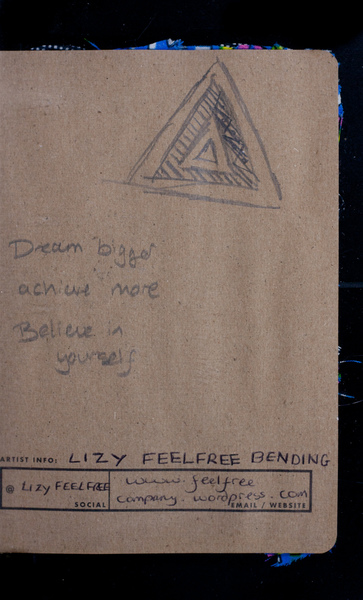 Dream bigger
achieve more
Believe in
yourself
ARTIST INFO: LIZY FEELFREE BENDING
@ LIZY FEELFREE
SOCIAL
www.feelfree
company.wordpress.com
EMAIL / WEBSITE